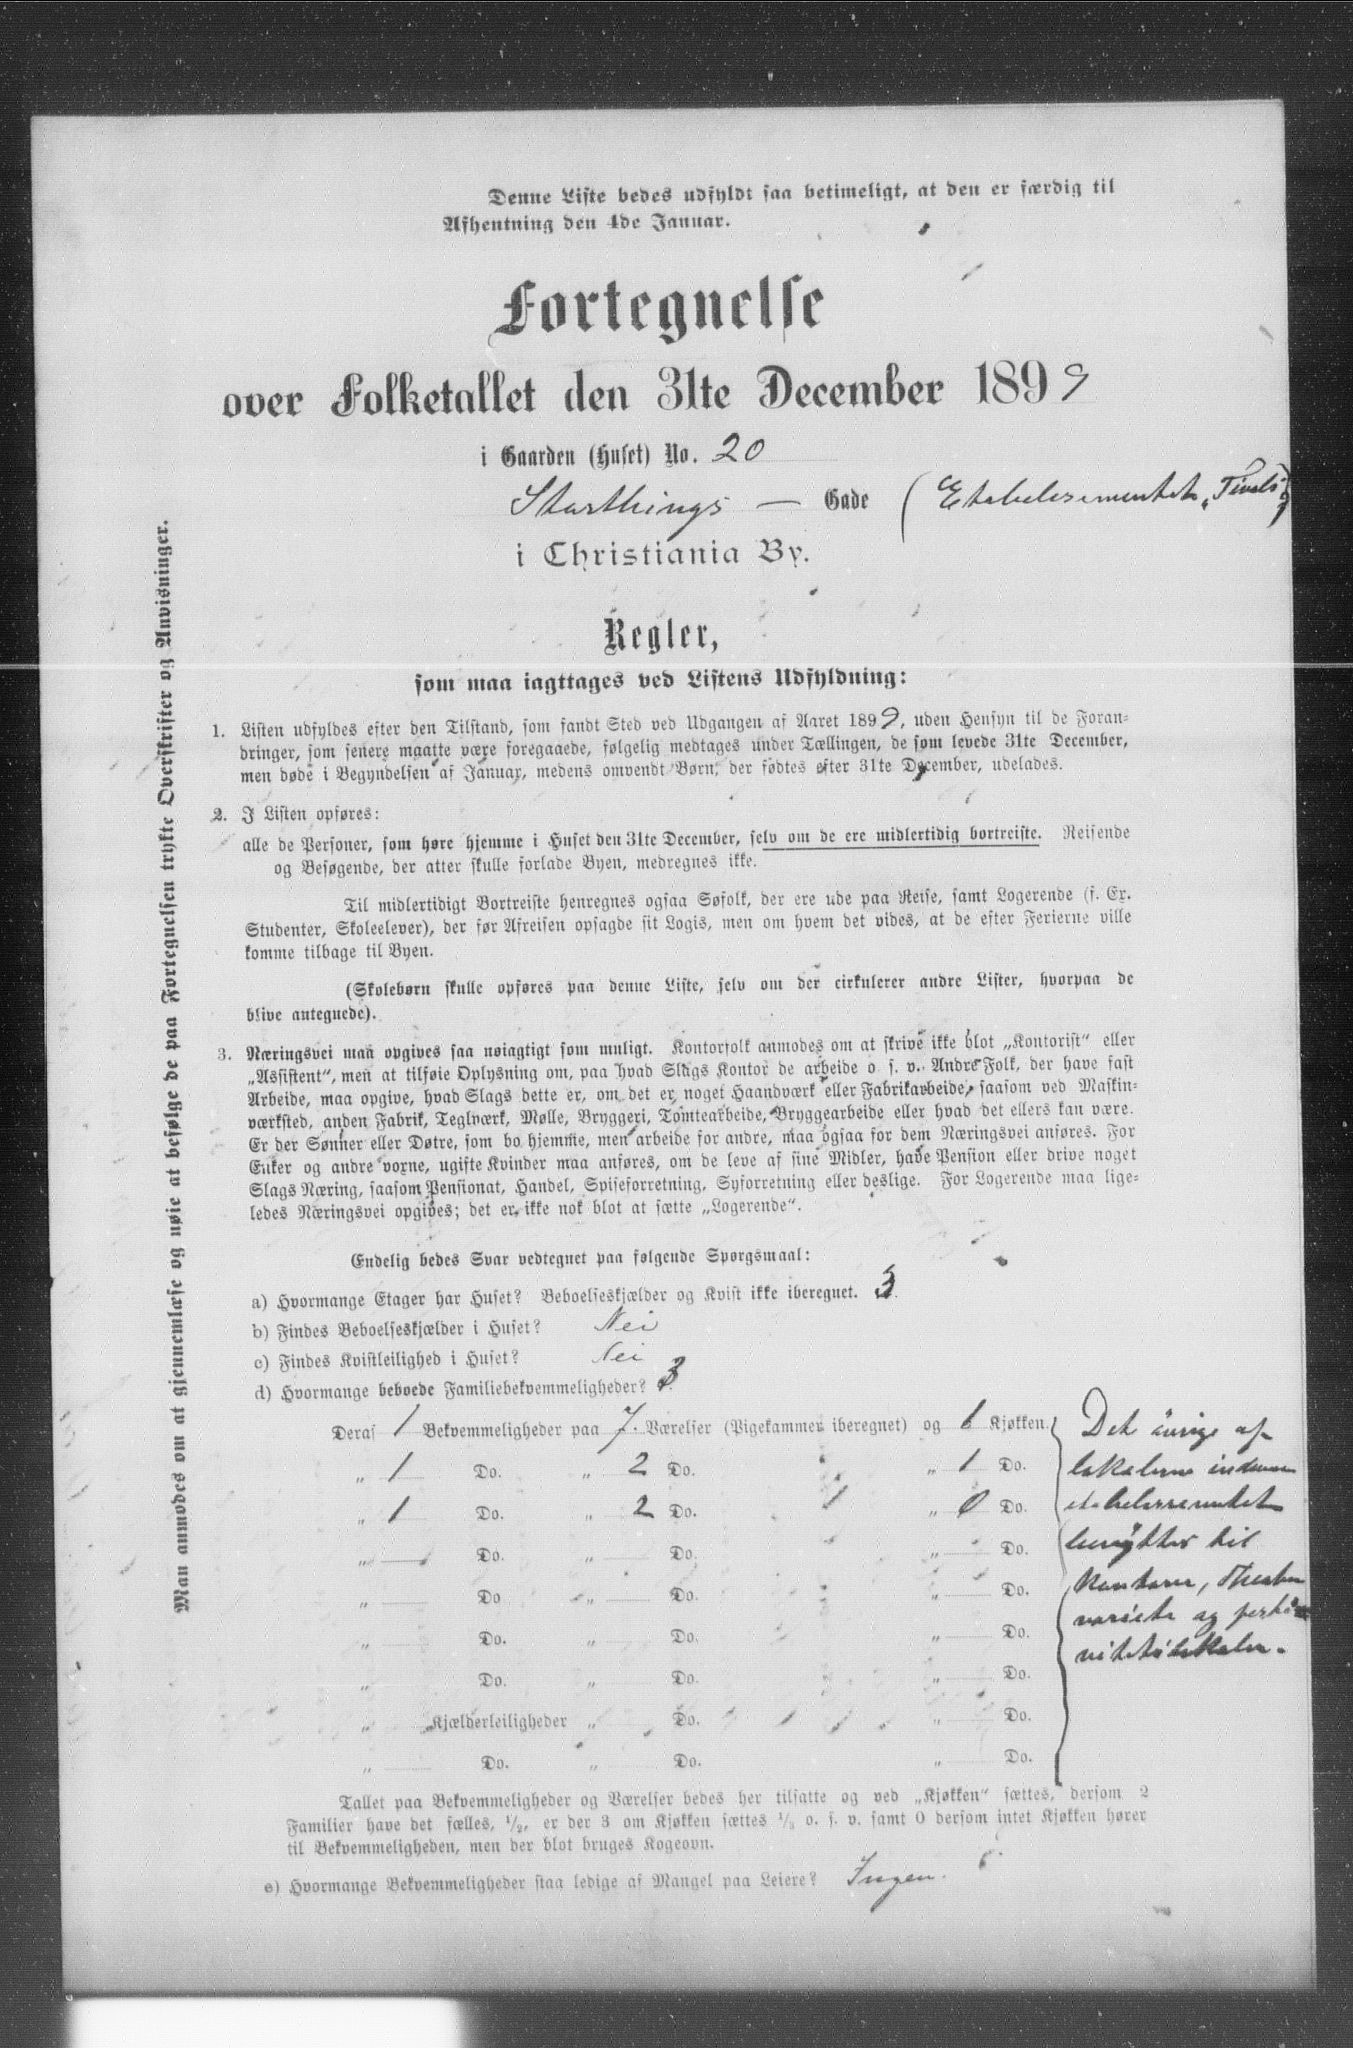 Denne Liste bedes udfyldt saa betimeligt, at den er færdig til
Afhentning den 4de Januar.
Fortegnelse
over Folketallet den 31te December 1899
i Gaarden (Huset) No. 20
Storthings — Gade (Etablissementet „Tivoli“)
i Christiania By.
Regler,
som maa iagttages ved Listens Udfyldning:
1. Listen udfyldes efter den Tilstand, som fandt Sted ved Udgangen af Aaret 1899, uden Hensyn til de Foran-
dringer, som senere maatte være foregaaede, følgelig medtages under Tællingen, de som levede 31te December,
men døde i Begyndelsen af Januar, medens omvendt Børn, der fødtes efter 31te December, udelades.
2. I Listen opføres:
alle de Personer, som høre hjemme i Huset den 31te December, selv om de ere midlertidig bortreiste. Reisende
og Besøgende, der atter skulle forlade Byen, medregnes ikke.
Til midlertidigt Bortreiste henregnes ogsaa Søfolk, der ere ude paa Reise, samt Logerende (f. Ex.
Studenter, Skoleelever), der før Afreisen opsagde sit Logis, men om hvem det vides, at de efter Ferierne ville
komme tilbage til Byen.
(Skolebørn skulle opføres paa denne Liste, selv om der cirkulerer andre Lister, hvorpaa de
blive antegnede).
3. Næringsvei maa opgives saa nøiagtigt som muligt. Kontorfolk anmodes om at skrive ikke blot „Kontorist“ eller
„Assistent“, men at tilføie Oplysning om, paa hvad Slags Kontor de arbeide o. s. v. Andre Folk, der have fast
Arbeide, maa opgive, hvad Slags dette er, om det er noget Haandværk eller Fabrikarbeide, saasom ved Maskin-
værksted, anden Fabrik, Teglværk, Mølle, Bryggeri, Tomtearbeide, Bryggearbeide eller hvad det ellers kan være.
Er der Sønner eller Døtre, som bo hjemme, men arbeide for andre, maa ogsaa for dem Næringsvei anføres. For
Enker og andre voxne, ugifte Kvinder maa anføres, om de leve af sine Midler, have Pension eller drive noget
Slags Næring, saasom Pensionat, Handel, Spiseforretning, Syforretning eller deslige. For Logerende maa lige-
ledes Næringsvei opgives; det er ikke nok blot at sætte „Logerende“.
Endelig bedes Svar vedtegnet paa følgende Spørgsmaal:
a) Hvormange Etager har Huset? Beboelseskjælder og Kvist ikke iberegnet. 3
b) Findes Beboelseskjælder i Huset? Nei
c) Findes Kvistleilighed i Huset? Nei
d) Hvormange beboede Familiebekvemmeligheder? 3
Deraf 1 Bekvemmeligheder paa 7 Værelser (Pigekammer iberegnet) og 1 Kjøkken.
„ 1 Do. „ 2 Do. „ 1 Do.
„ 1 Do. „ 2 Do. „ 0 Do.
„ Do. „ Do. „ Do.
„ Do „ Do. „ Do.
„ Do. „ Do. „ Do.
„ Do. „ Do. „ Do.
„ Kjælderleiligheder „ Do. „ Do.
„ Do. „ Do. „ Do.
Det øvrige af
lokalerne
etablissementet
benyttes til
Kontorer,
og
Tallet paa Bekvemmeligheder og Værelser bedes her tilsatte og ved „Kjøkken“ sættes, dersom 2
Familier have det fælles, 1/2, er der 3 om Kjøkken sættes 1/3 o. s. v. samt 0 dersom intet Kjøkken hører
til Bekvemmeligheden, men der blot bruges Kogeovn.
e) Hvormange Bekvemmeligheder staa ledige af Mangel paa Leiere? Ingen.
Man anmodes om at gjennemlæse og nøie at befølge de paa Fortegnelsen trykte Overskrifter og Anvisninger.